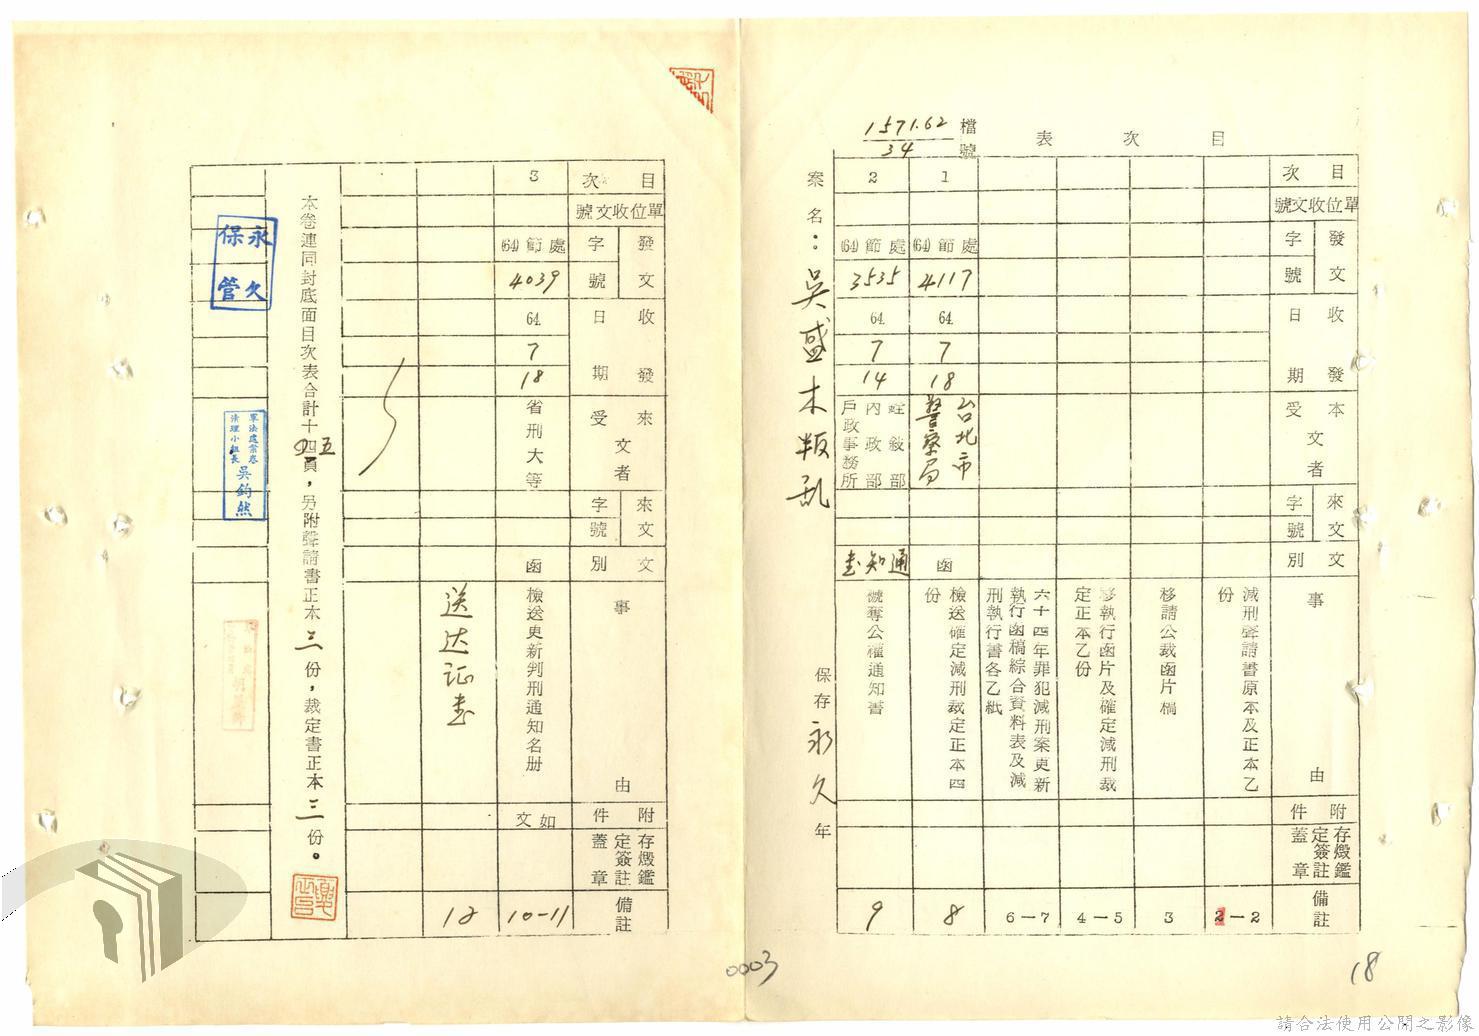 目次表
檔號
1571.62
34
目次
單位收文號
發文
字號
收發
日期
本文
受者
來文
字號
文別
事由
附件
存燬鑑定簽註蓋章
備註
減刑聲請書原本及正本乙份
2-2
移請公裁函片稿
3
移執行函片及確定減刑裁定正本乙份
4-5
六十四年罪犯減刑案更新執行函稿綜合資料表及減刑執行書各乙紙
6-7
1
(64)節處
4117
64
7
18
台北市警察局
函
檢送確定減刑裁定正本四份
8
2
(64)節處
3535
64
7
14
銓敘部
內政部
戶政事務所
通知書
褫奪公權通知書
9
案名：吳盛木叛亂
保存永久年
目次
單位收文號
發文
字號
收發
日期
來文
受者
來文
字號
文別
事由
附件
存燬鑑定簽註蓋章
備註
3
(64)節處
4039
64
7
18
省刑大等
函
檢送更新判刑通知名册
如文
10-11
送达证書
12
本卷連同封底面目次表合計十四頁，另附聲請書正本三份，裁定書正本三份。
五
永久保管
軍法處案卷
清理小組長
吳鈞然
0003
18
請合法使用公開之影像